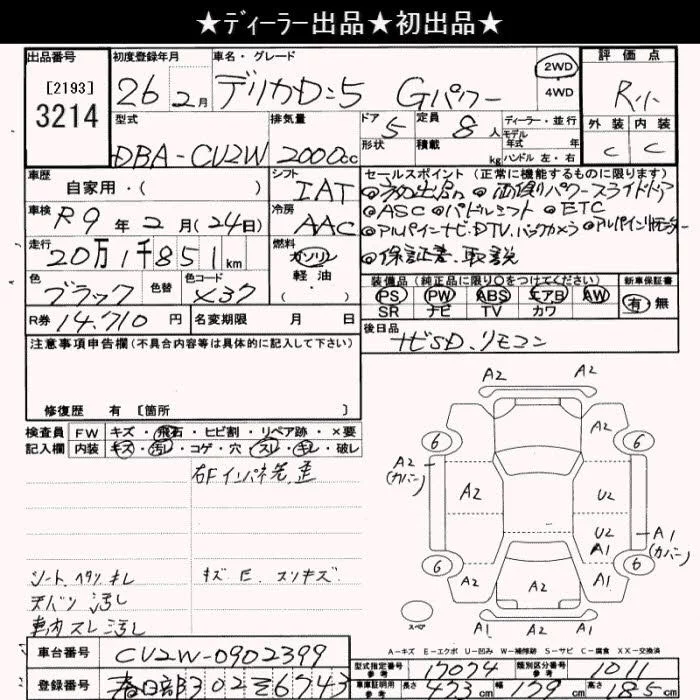 ★ディーラー出品★初出品★
出品番号
[2193]
3214
初度登録年月
26 2月
車名・グレード
デリカD:5 Gパワー
2WD
4WD
評価点
R小
外装 内装
C C
型式
DBA-CU2W
排気量
2000cc
ドア 5
形状
定員 8人
積載 kg
ディーラー・並行
モデル
年式 年
ハンドル 左・右
車歴
自家用・( )
シフト
IAT
セールスポイント (正常に機能するものに限ります)
◎初出品 ◎両側パワースライドドア
◎ASC ◎パドルシフト ◎ETC
◎アルパインナビ.DTV.バックカメラ
◎保証書.取説
車検
R9年2月(24日)
冷房
AAC
走行
20万1千851km
燃料
ガソリン
軽油・
( )
色
ブラック
色替
色コード
X37
装備品 (純正品に限り○をつけてください)
PS・PW・ABS・エアB・AW
SR ナビ TV カワ
新車保証書
有・無
R券 14,710円
名変期限 月 日
後日品
ナビSD.リモコン
注意事項申告欄(不具合内容等は具体的に記入して下さい)
修復歴 有 [箇所 ]
検査員 FW キズ・飛石・ヒビ割・リペア跡・×要
記入欄 内装 キズ・汚れ・コゲ・穴・スレ・キレ・破レ
右Fインパネ先.歪
シート.ヘタリ.キレ
キズ E. スリキズ.
天バリ 汚レ
車内スレ汚レ
A2 A2
6 A2 6
A2
(カバー)
A2 U2
U2
A1
A1
(カバー)
6 A2 A2 A1 6
スペア
A1 A1 A2
A-キズ E-エクボ U-凹み W-補修跡 S-サビ C-腐食 XX-交換済
車台番号
CU2W-0902399
型式指定番号
17074
類別区分番号
1011
登録番号
春日部302そ6743
車庫証明用
参考
長さ 473cm
幅 179cm
高さ 185cm